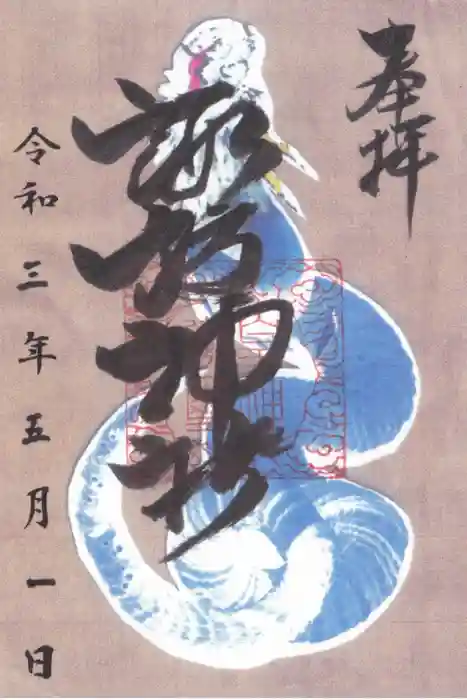 奉拝
諏訪神社
令和三年五月一日